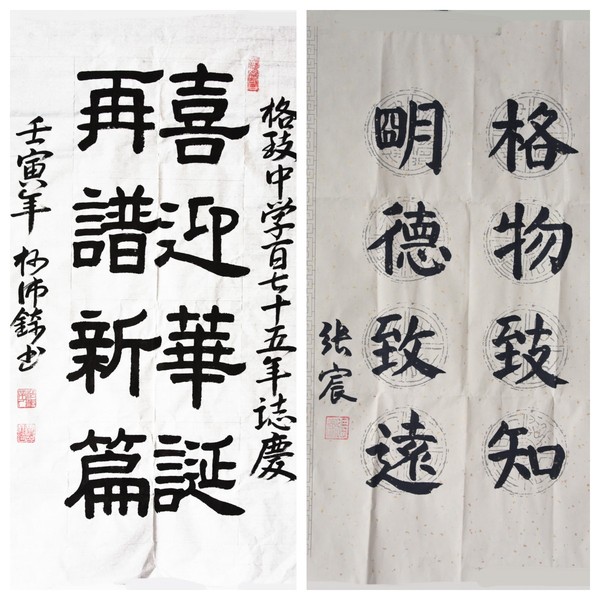 格致中学百七十五年誌慶
喜迎華誕
再譜新篇
壬寅年
格物致知
明德致遠
张宸